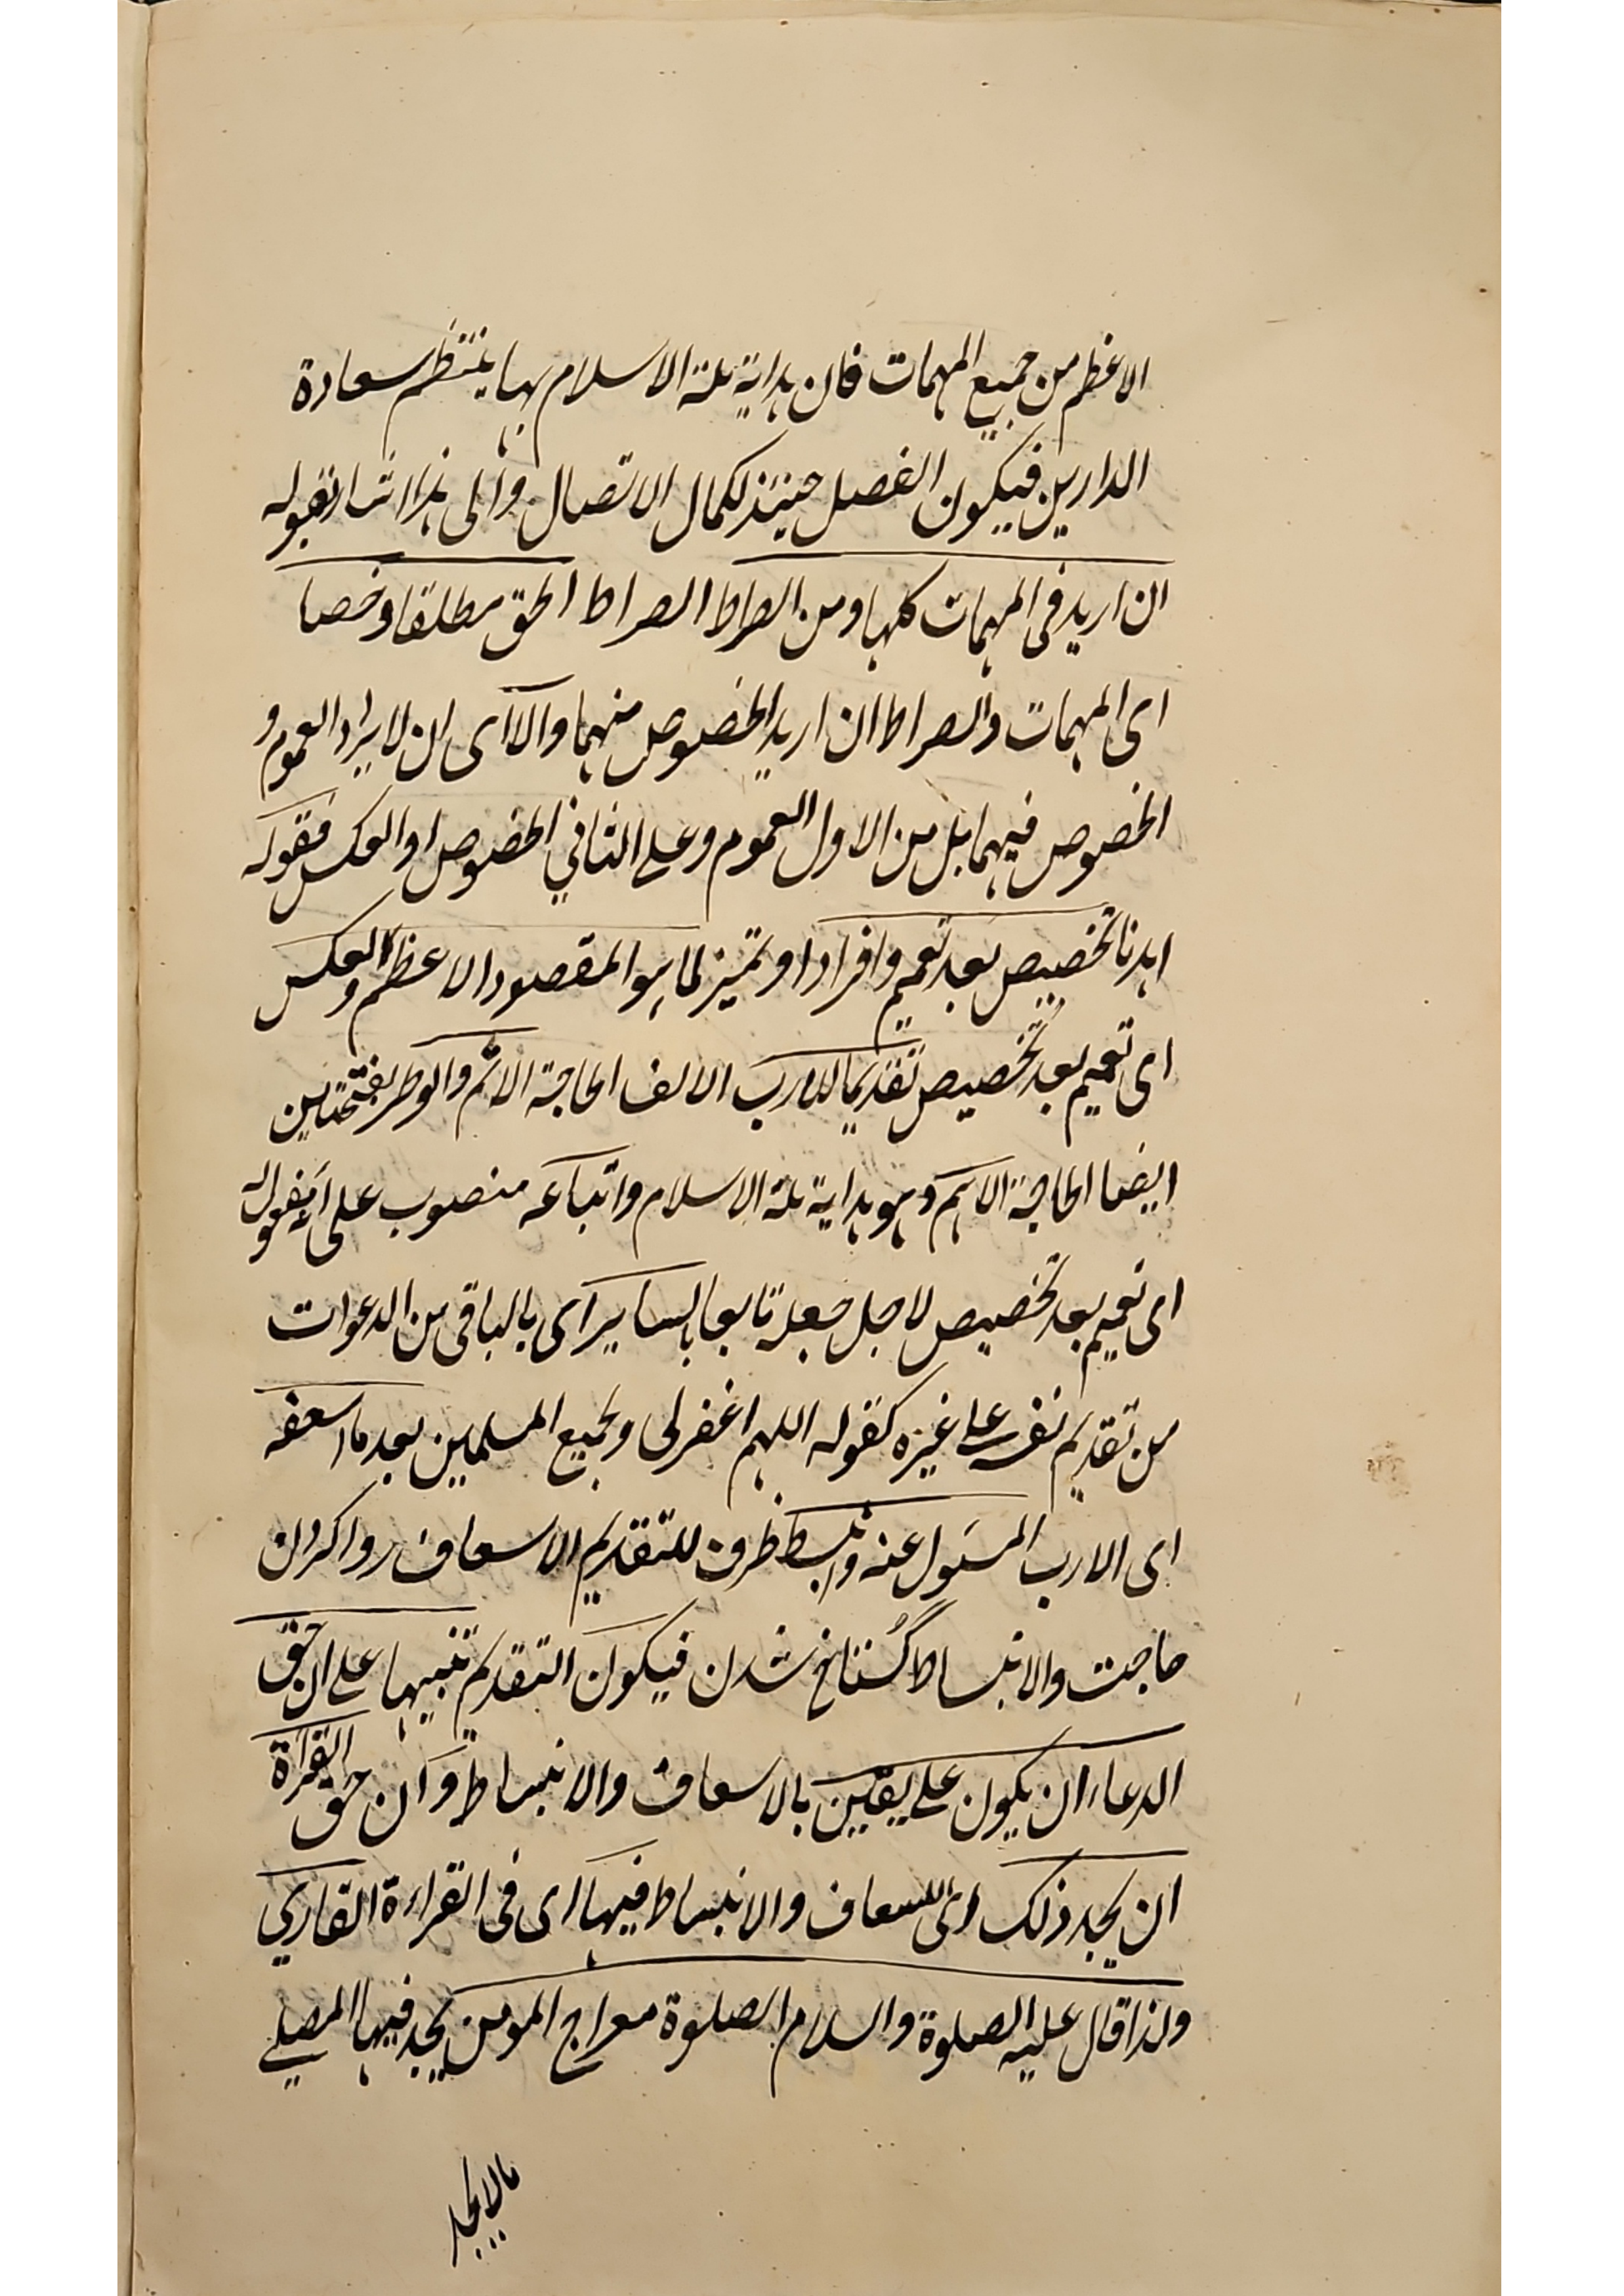 الاعظم من جميع المهمات فان هداية ملة الاسلام بها ينتظم سعادة
الدارين فيكون الفصل حينئذ لكمال الاتصال والى هذا اشار بقوله
ان اريد فى المهمات كلها ومن الصراط الصراط الحق مطلقا وخصا
اى المهمات والصراط ان اريد الخصوص منهما والا اى ان لا يراد العموم و
الخصوص فيهما بل من الاول العموم وعلى الثاني الخصوص او العكس فقوله
اهدنا تخصيص بعد تعميم وافرادا وتميز لما هو المقصود الاعظم والعكس
اى تعميم بعد تخصيص تقديما للارب الالف الحاجة الاتم والوطر بفتحتين
ايضا الحاجة الاهم وهو هداية ملة الاسلام واتباعه منصوب على انه مفعوله
اى تعميم بعد تخصيص لاجل جعله تابعا بالساير اى بالباقى من الدعوات
من تقديم نفسه على غيره كقوله اللهم اغفر لى ولجميع المسلمين بعد ما اسعفه
اى الارب المسئول عنه وانبسط ظرف للتقديم الاسعاف روا كردن
حاجت والانبساط گستاخ شدن فيكون التقديم تنبيها على ان حق
الدعاء ان يكون على يقين بالاسعاف والانبساط وان حق القراءة
ان يجد ذلك اى الاسعاف والانبساط فيها اى فى القراءة القاري
ولذا قال عليه الصلوة والسلام الصلوة معراج المومن يجد فيها المصلي
مالا يجد